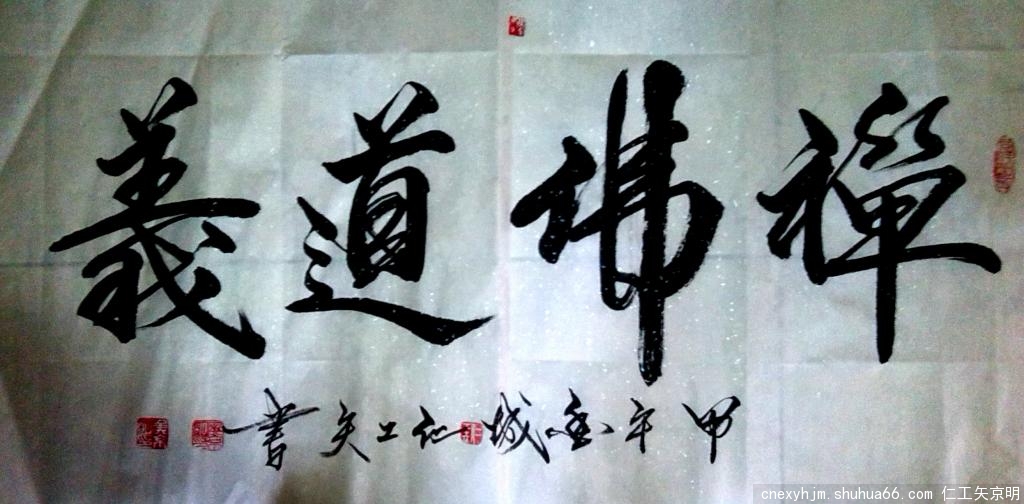 禪佛道義
甲午金城仁工矢書
cnexyhjm.shuhua66.com 仁工矢京明